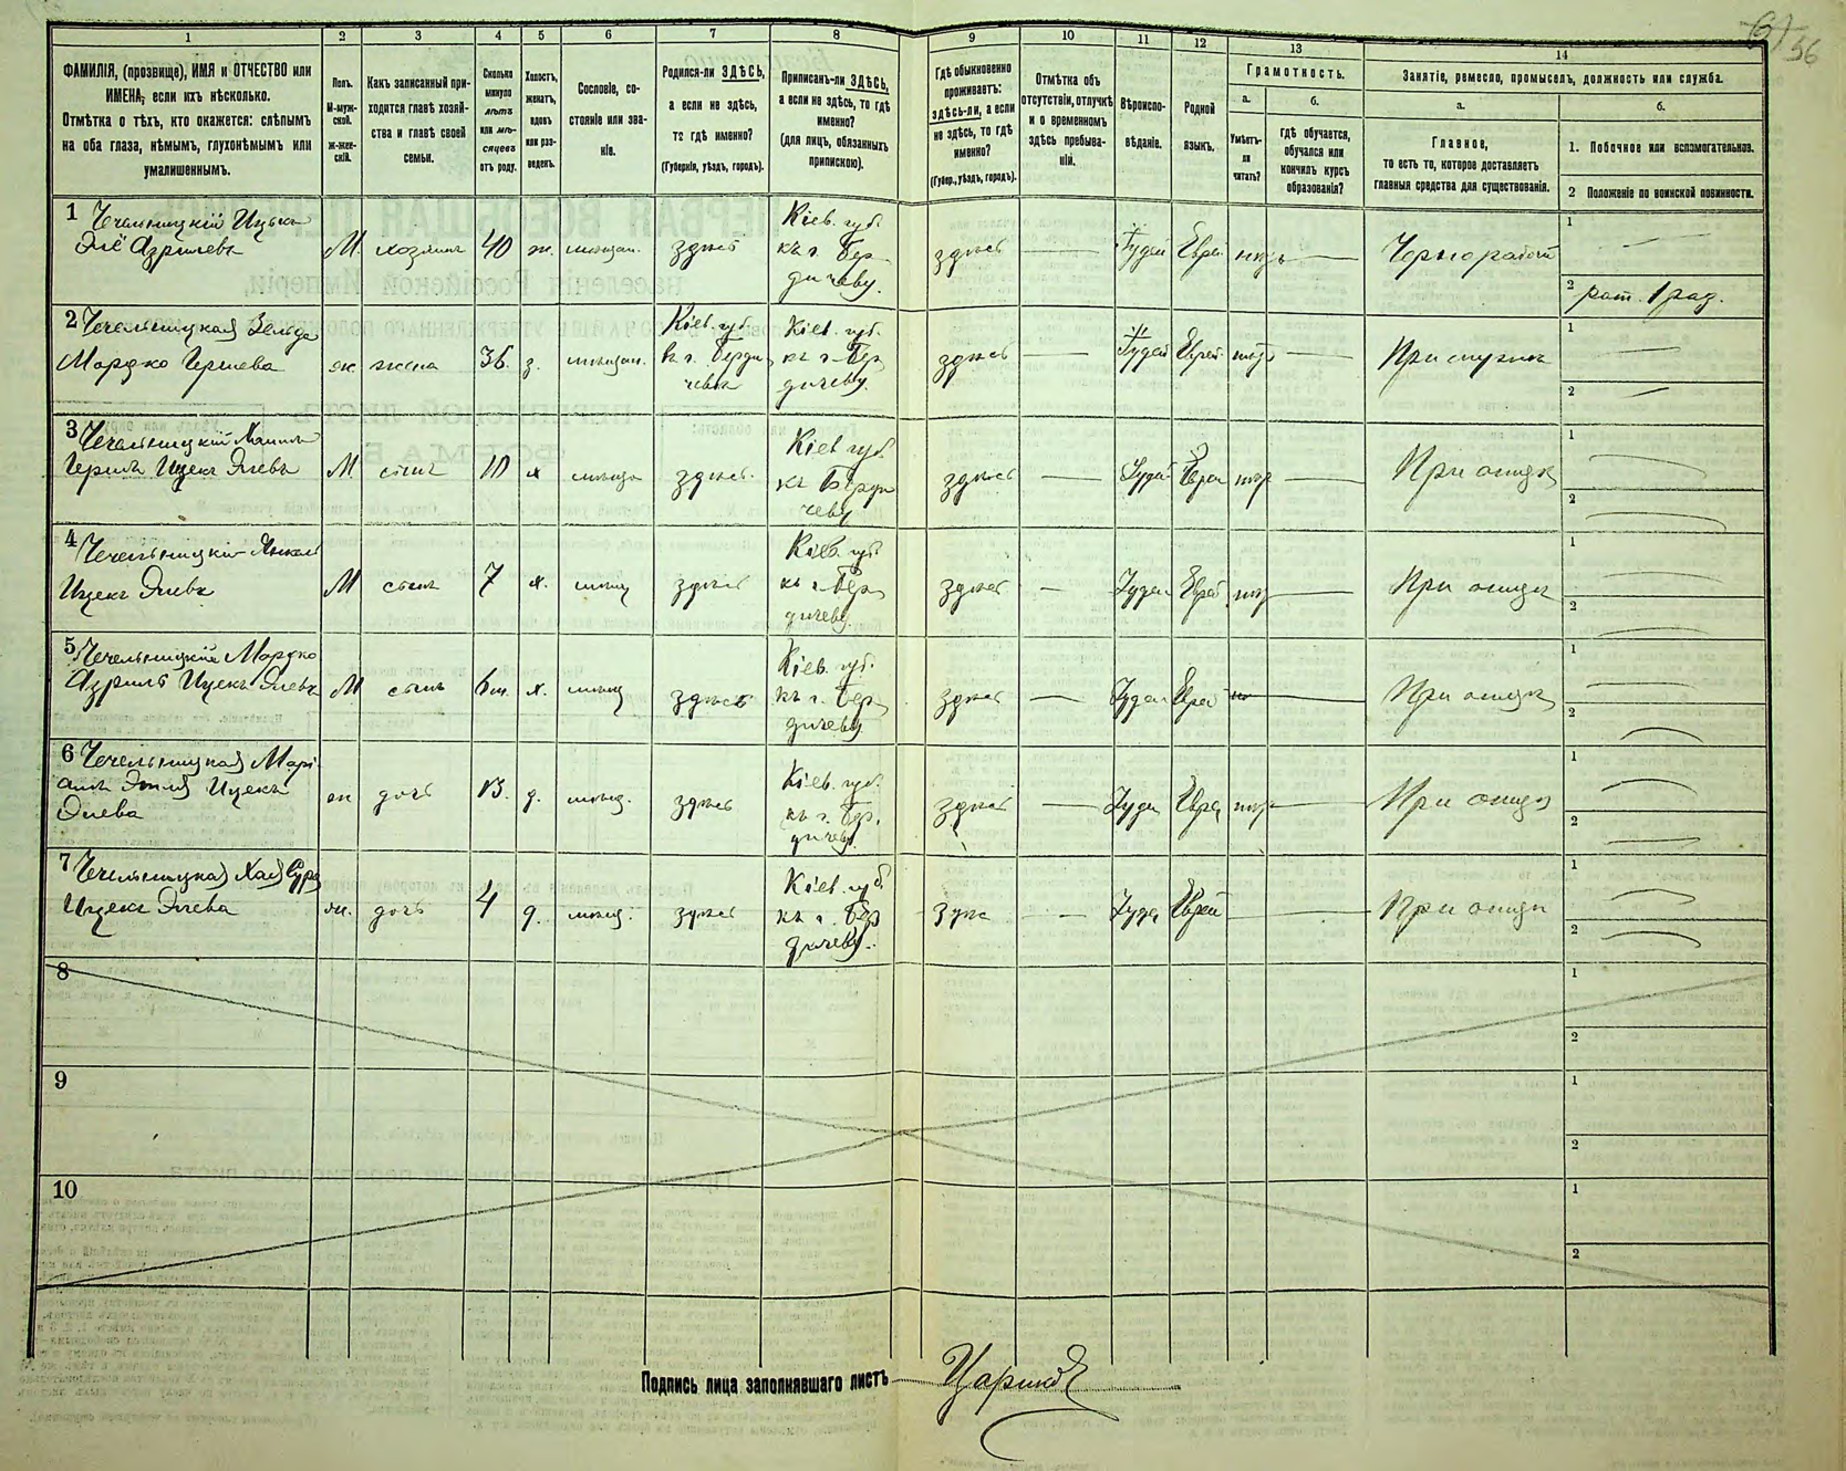 1 2 3 4 5 6 7 8 9 10 11 12 13 14
ФАМИЛІЯ, (прозвище), ИМЯ и ОТЧЕСТВО или
ИМЕНА, если ихъ нѣсколько.
Отмѣтка о тѣхъ, кто окажется: слѣпымъ
на оба глаза, нѣмымъ, глухонѣмымъ или
умалишеннымъ.
Полъ.
М-муж-
ской.
Ж-жен-
скій.
Какъ записанный при-
ходится главѣ хозяй-
ства и главѣ своей
семьи.
Сколько
минуло
лѣтъ
или мѣ-
сяцевъ
отъ роду.
Холостъ,
женатъ,
вдовъ
или раз-
веденъ.
Сословіе, со-
стояніе или зва-
ніе.
Родился-ли ЗДѢСЬ,
а если не здѣсь,
то гдѣ именно?
(Губернія, уѣздъ, городъ).
Приписанъ-ли ЗДѢСЬ,
а если не здѣсь, то гдѣ
именно?
(для лицъ, обязанныхъ
припискою).
Гдѣ обыкновенно
проживаетъ:
здѣсь-ли, а если
не здѣсь, то гдѣ
именно?
(Губер., уѣздъ, городъ).
Отмѣтка объ
отсутствіи, отлучкѣ
и о временномъ
здѣсь пребыва-
ніи.
Вѣроиспо-
вѣданіе.
Родной
языкъ.
Грамотность.
а.
Умѣетъ-
ли
читать?
б.
гдѣ обучается,
обучался или
кончилъ курсъ
образованія?
Занятіе, ремесло, промыселъ, должность или служба.
а.
Главное,
то есть то, которое доставляетъ
главныя средства для существованія.
б.
1. Побочное или вспомогательное.
2 Положеніе по воинской повинности.
56
1 Чечельницкій Ицько
Эліе Азрилевъ
М. хозяинъ 40 ж. мещан. здѣсь
Кіев. губ.
къ г. Бер
дичеву.
здѣсь — Іудей Еврей — Чернорабочій
1
2 рат. 1 раз.
2 Чечельницкая Зельда
Мордко Гершева
ж жена 36. з. мещан.
Кіев. губ.
въ г. Берди
чевѣ
Кіев. губ.
къ г. Бер
дичеву.
здѣсь — Іудей Еврей — При мужѣ
1
2
3 Чечельницкій
Гершъ Ицекъ Элевъ
М. сынъ 10 х здѣсь.
Кіев губ
къ Берди
чеву
здѣсь — Іудей Еврей — При отцѣ
1
2
4 Чечельницкій Янкель
Ицекъ Элевъ
М сынъ 7 х. мещ здѣсь
Кіев. губ.
къ г. Бер
дичеву.
здѣсь — Іудей Еврей — При отцѣ
1
2
5 Чечельницкій Мордко
Азриль Ицекъ Элевъ
М сынъ х. мещ здѣсь
Кіев. губ.
къ г. Бер
дичеву.
здѣсь — Іудей Еврей — При отцѣ
1
2
6 Чечельницкая Марі
Ицекъ
Элева
ж дочь 13. д. мещ. здѣсь
Кіев. губ.
къ г. Бер.
дичеву.
здѣсь — Іуде Евре — При отцѣ
1
2
7 Чечельницкая Хая Сура
Ицекъ Элева
ж. дочь 4 д. мещ. здѣсь
Кіев. губ.
къ г. Бер
дичеву.
здѣс — Іуде Еврей — При отцѣ
1
2
8
1
2
9
1
2
10
1
2
Подпись лица заполнявшаго листъ